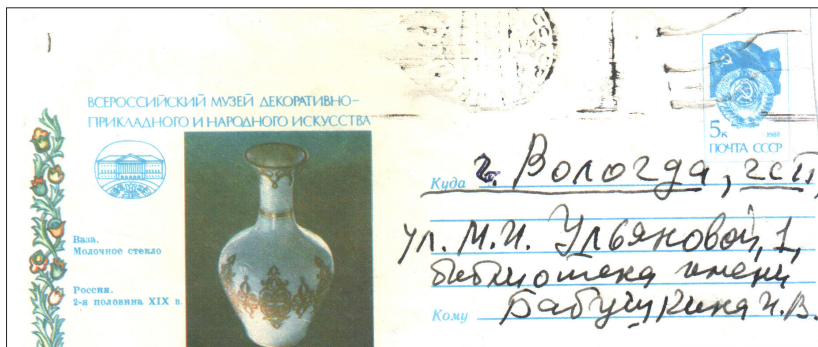 ВСЕРОССИЙСКИЙ МУЗЕЙ ДЕКОРАТИВНО-
ПРИКЛАДНОГО И НАРОДНОГО ИСКУССТВА
Ваза.
Молочное стекло
Россия.
2-я половина XIX в.
5к 1988
ПОЧТА СССР
Куда г. Вологда, ГСП,
ул. М.И. Ульяновой, 1,
библиотека имени
Кому Бабушкина И.В.